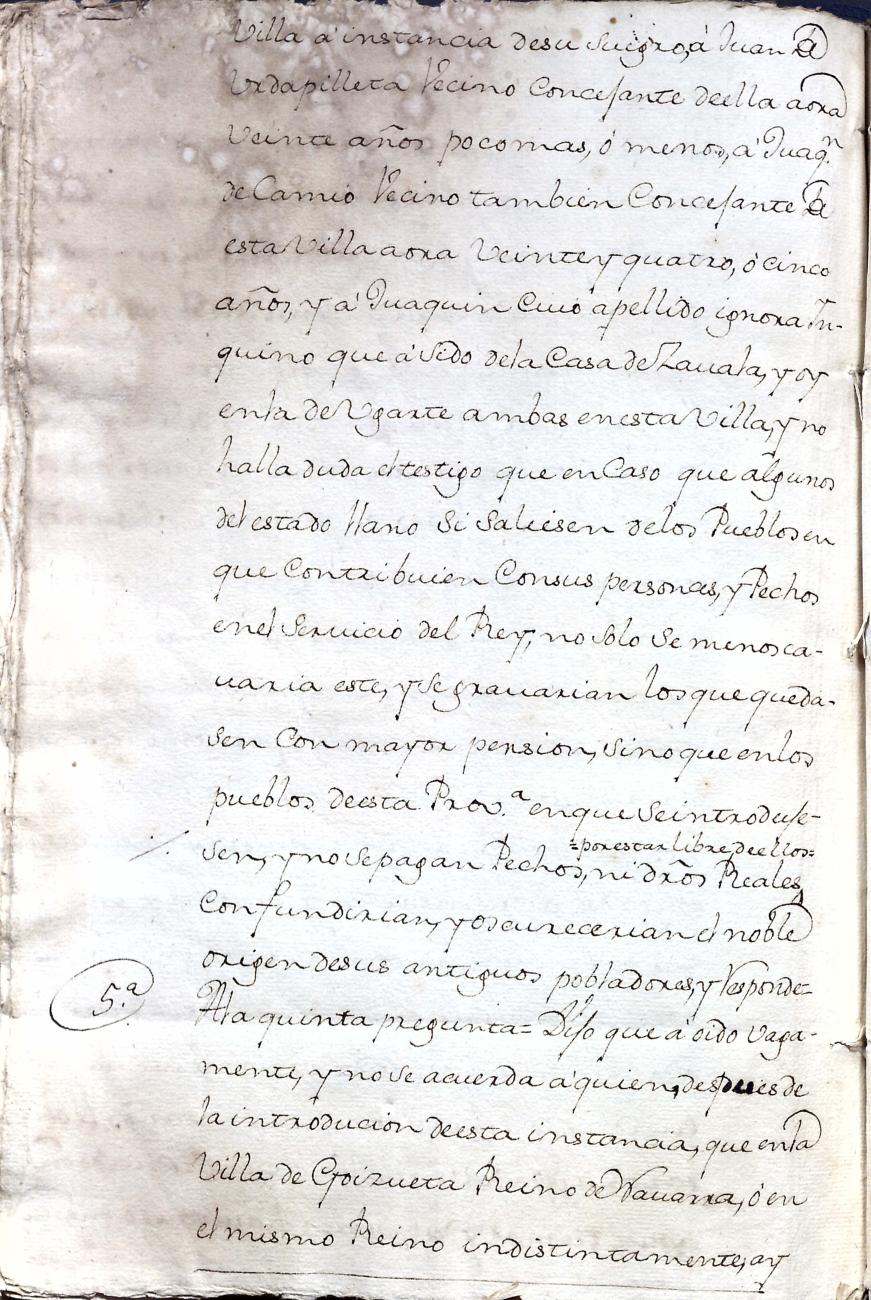 Villa a instancia desu suegro, á Juan de
Urdapilleta Vecino Concesante deella aora
Veinte años pocomas, ó menos, a Juaqn.
de Camio Vecino tambien Concesante de
esta Villa aora Veinteyquatro, ó cinco
años, y á Juaquin Cuio apellido ignora In-
quino que á sido dela Casa de Zavala, y oy
enla de Vgarte ambas enesta Villa, y no
halla duda el testigo que en Caso que algunos
del estado llano si saliesen delos Pueblos en
que Contribuien Consus personas, y Pechos
enel Servicio del Rey, no solo se menosca-
uaria este, y se grauarian los que queda-
sen Con mayor pension, sino que enlos
pueblos deesta Prov.a enque Seintroduje-
=porestar libre deellos=
sen, y no sepagan Pechos, ni dros Reales,
Confundirian, y oscurecerian el noble
origen desus antiguos pobladores, y Responde=
5.a
Ala quinta pregunta= Dijo que á oido vaga-
mente, y no se acuerda a quien, despues de
la introducion deesta instancia, que enla
Villa de Goizueta Reino de Nauarra, ó en
el mismo Reino indistintamente, ay